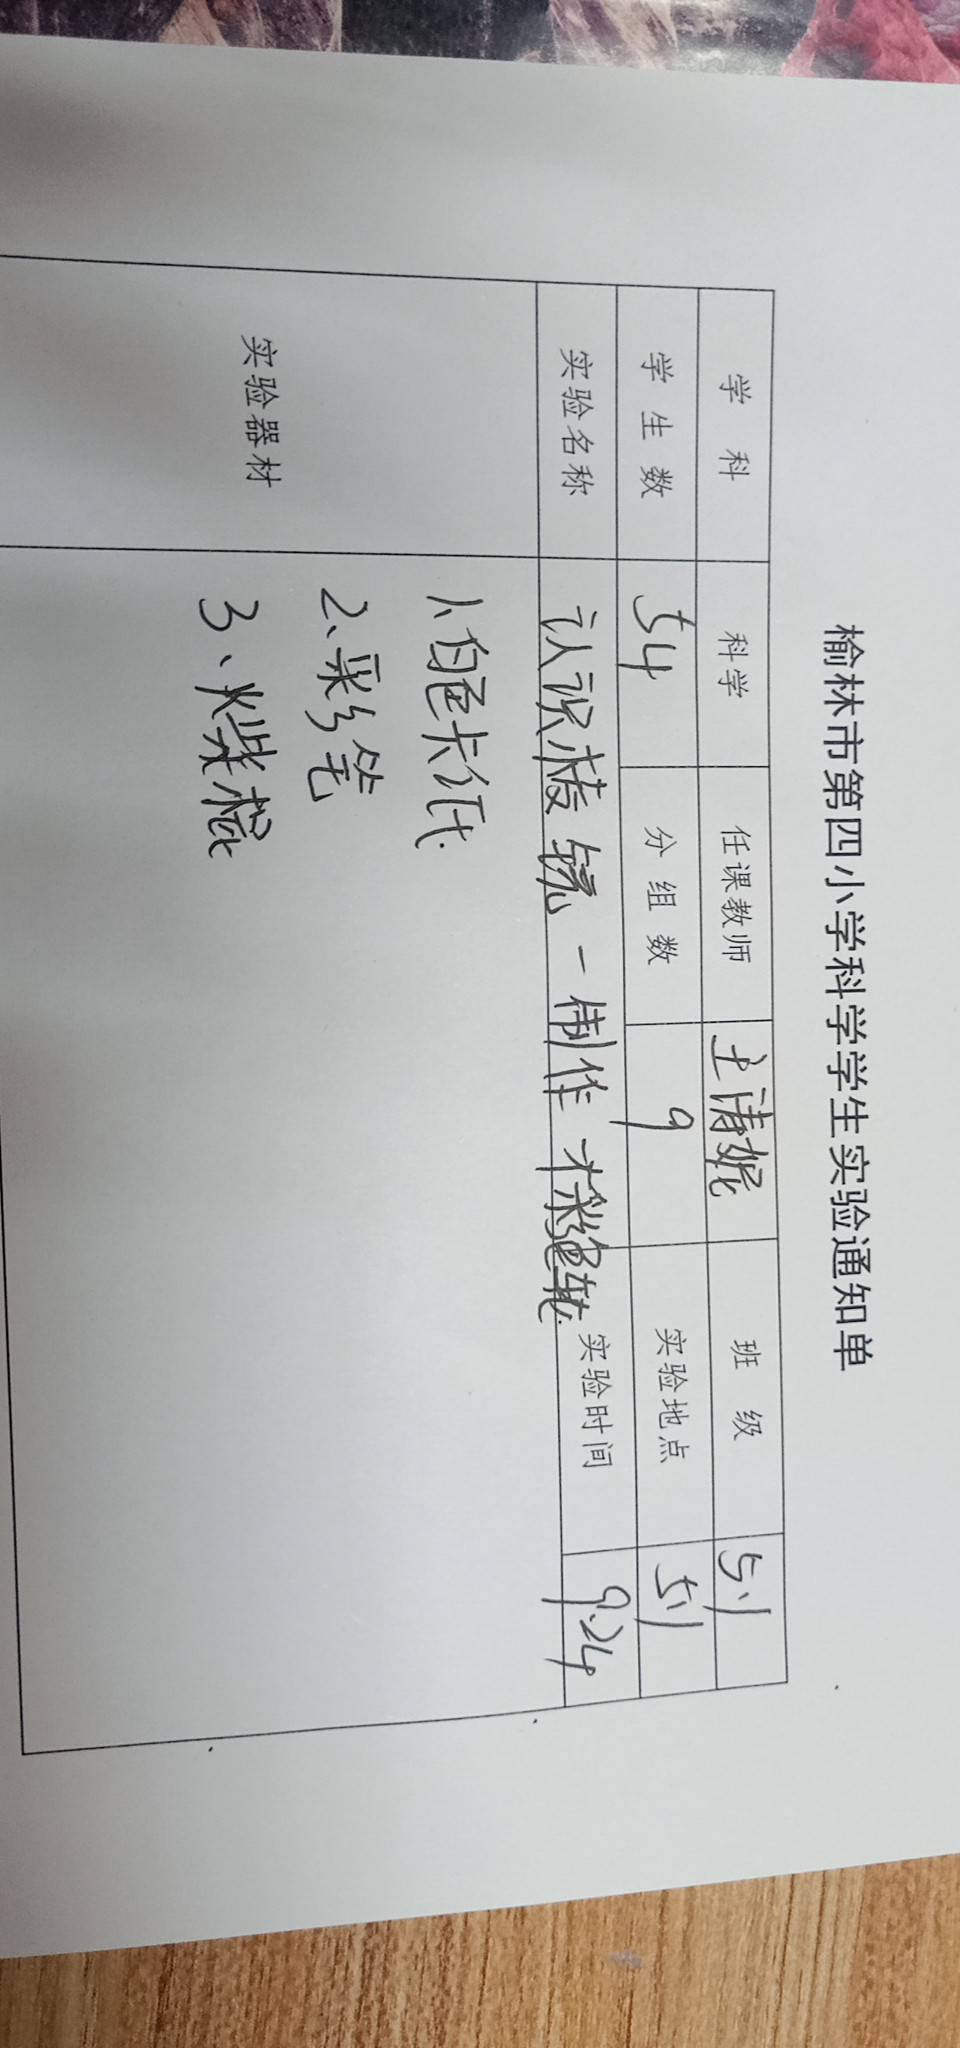 榆林市第四小学科学学生实验通知单
学科 科学 任课教师 王涛妮 班级 5.1
学生数 54 分组数 9 实验地点 5.1
实验名称 认识棱镜—制作彩色轮 实验时间 9.24
实验器材
1、白色卡纸
2、彩笔
3、火柴棍